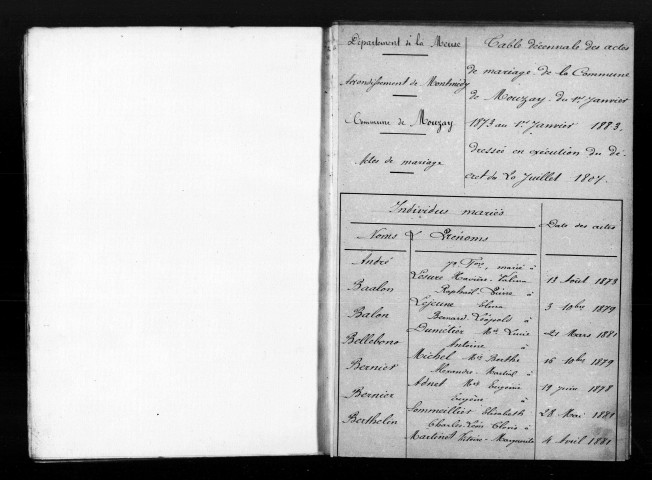 Département de la Meuse
Arrondissement de Montmédy
Commune de Mouzay
Actes de mariage
Table décennale des actes
de mariage de la Commune
de Mouzay du 1er Janvier
1873 au 1er Janvier 1883
dressée en exécution du dé-
cret du 20 Juillet 1807.
Individus mariés
Date des actes
Noms & Prénoms
André marié à
Lesure 13 Août 1873
Baalon Raphaël Pierre à
Lejeune Elina 3 10bre 1879
Balon Bernard Léopold à
Dumétier Mie 21 Mars 1881
Bellebono Antoine à
Michel Mie Berthe 16 10bre 1879
Berniet Alexandre Martial à
Adnet Mie Eugénie 19 juin 1878
Bernier Eugène à
Sommeillier Elisabeth 28 Mai 1881
Berthelin Charles Léon Clovis à
Martinet Victoire Marguerite 4 Avril 1881